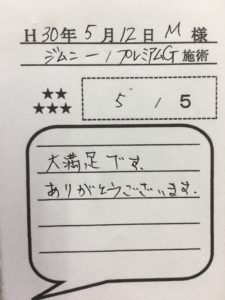 H30年5月12日M様
ジムニー/プレミアムG施術
★★
★★★
5 / 5
大満足です.
ありがとうございます.